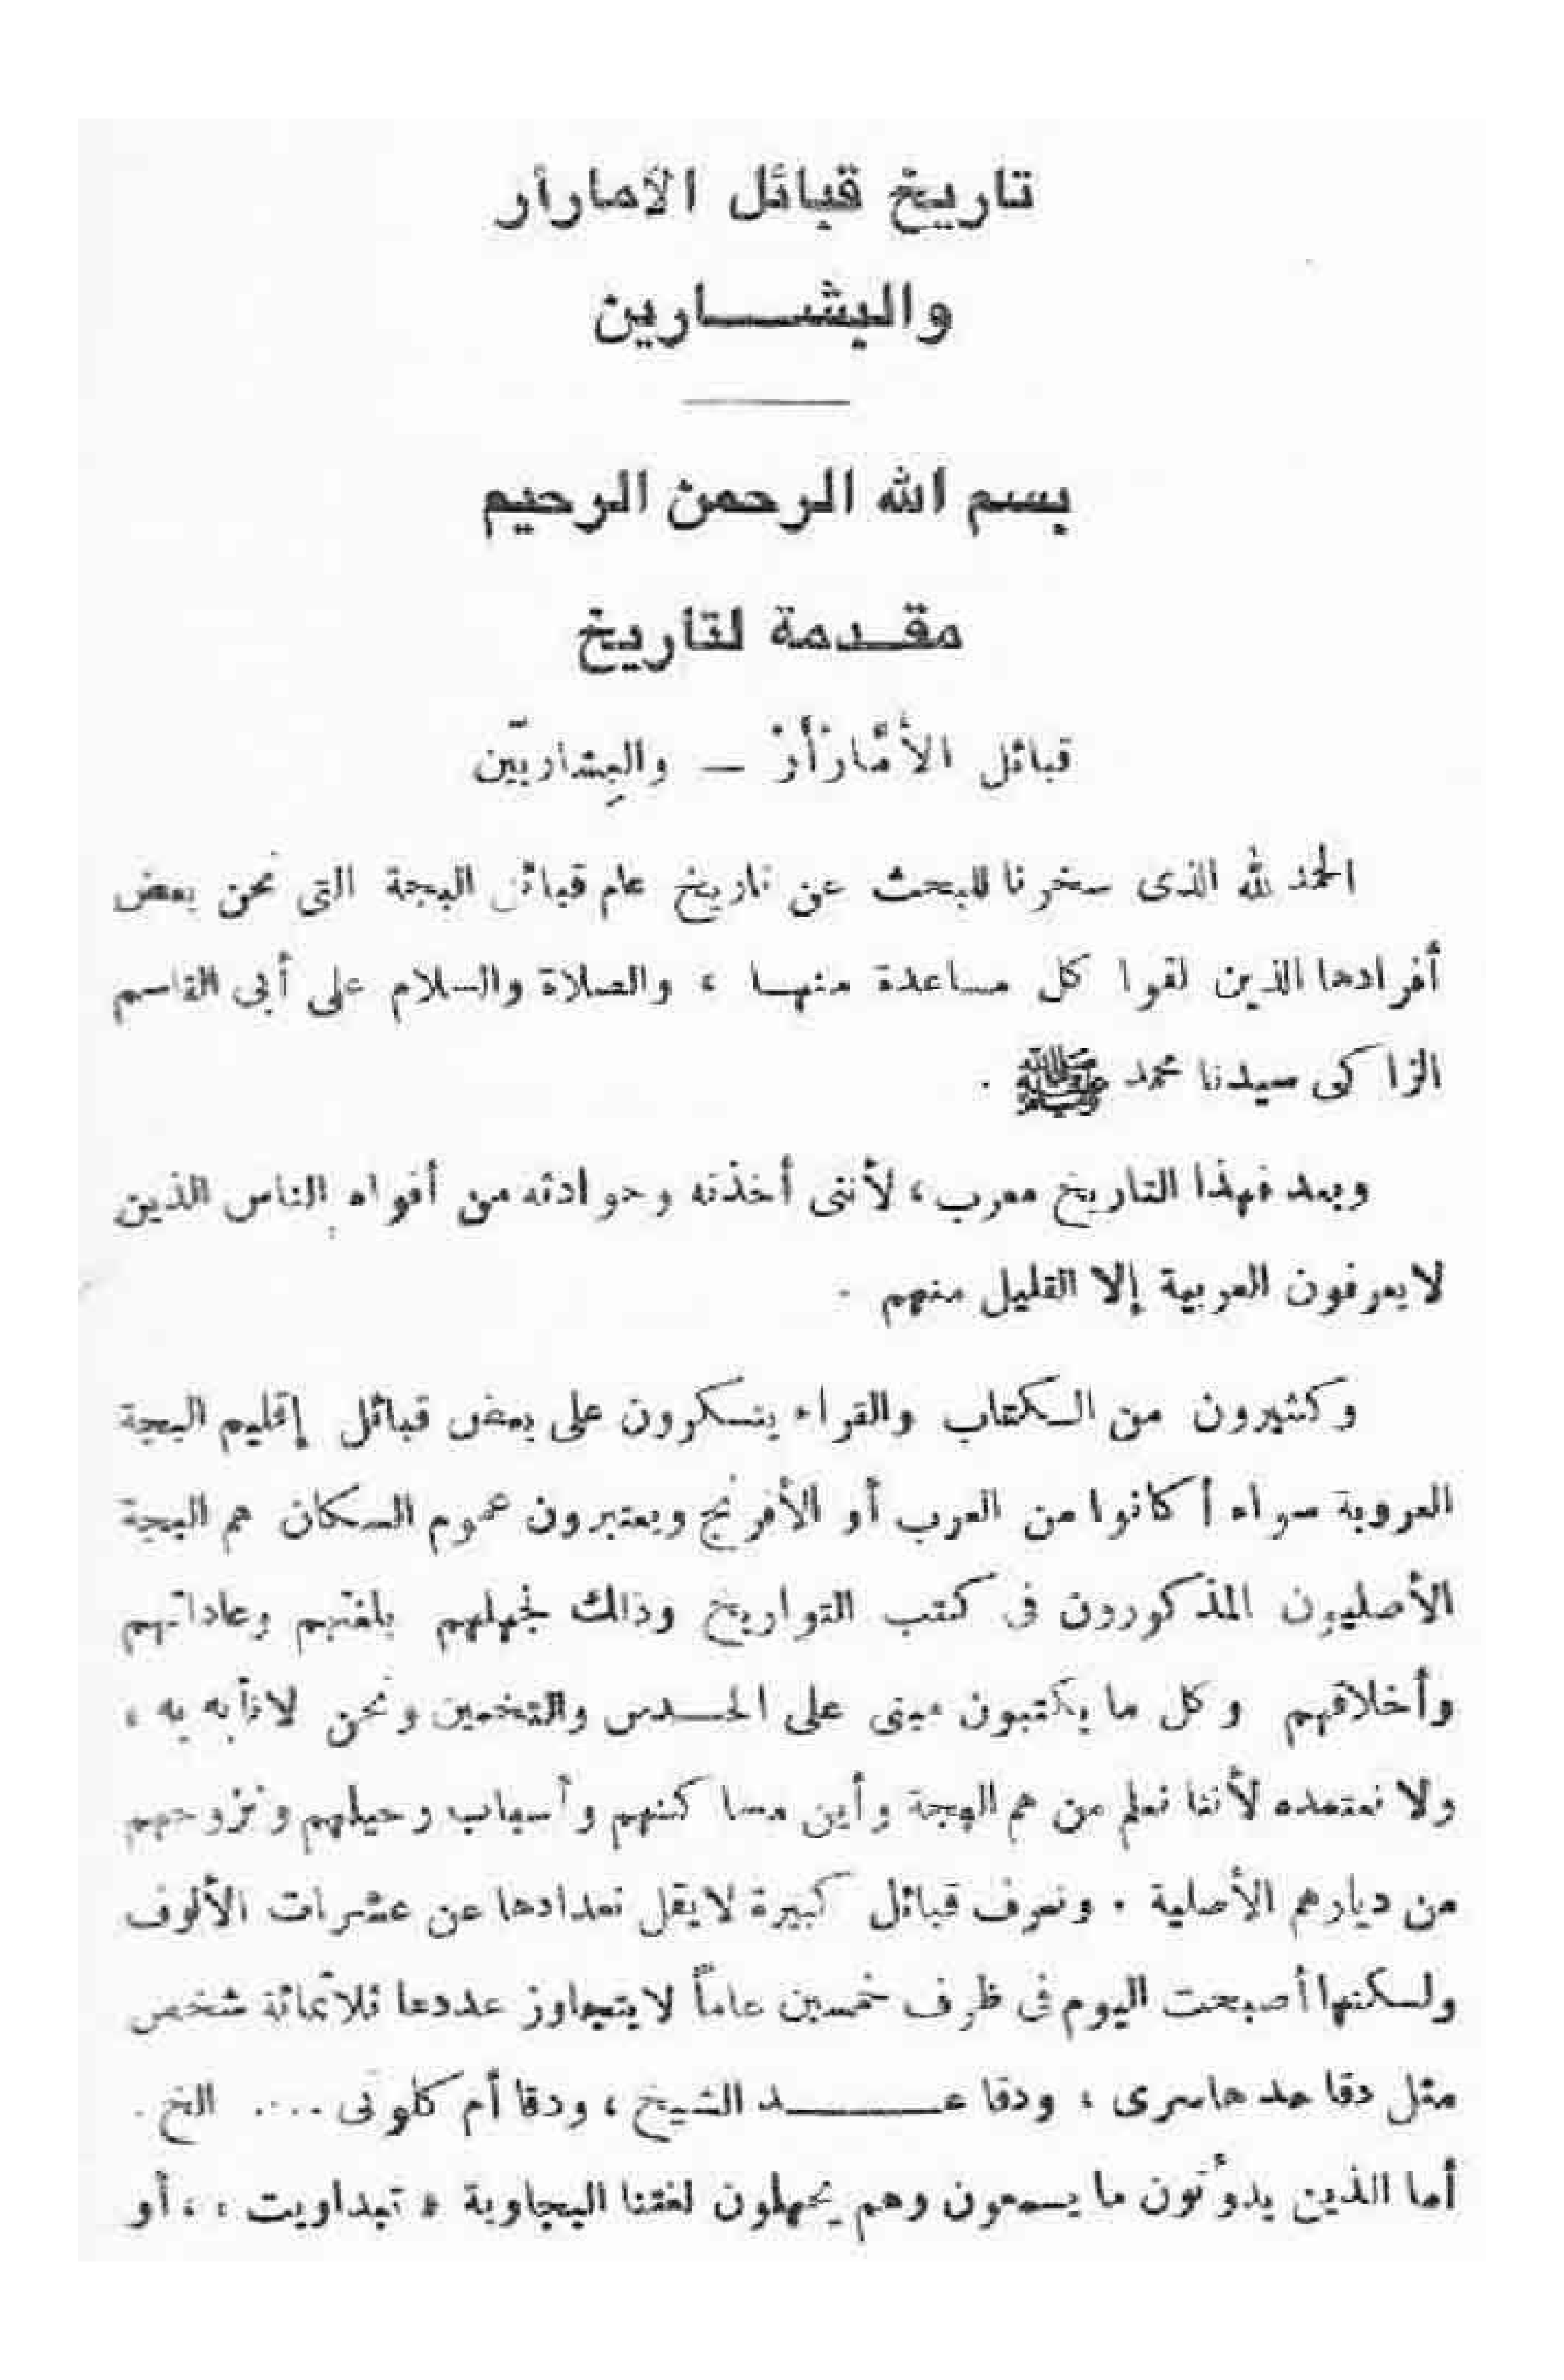 تاريخ قبائل الأمارأر
والبشــارين
بسم الله الرحمن الرحيم
مقـدمة لتاريخ
قبائل الأمَّارْأرْ – والبِشاريّين
الحمد لله الذى سخرنا للبحث عن تاريخ عام قبائل البجة التى نحن بعض
أفرادها الذين لقوا كل مساعدة منهـا ، والصلاة والسلام على أبى القاسم
الزاكى سيدنا محمد ﷺ .
وبعد فهذا التاريخ معرب ، لأننى أخذته وحوادثه من أفواه الناس الذين
لايعرفون العربية إلا القليل منهم .
وكثيرون من الكتاب والقراء ينكرون على بعض قبائل إقليم البجة
العروبة سواء أكانوا من العرب أو الأفرنج ويعتبرون عموم السكان هم البجة
الأصليون المذكورون فى كتب التواريخ وذالك لجهلهم بلغتهم وعاداتهم
وأخلاقهم وكل ما يكتبون مبنى على الحـدس والتخمين ونحن لانأبه به ،
ولا نعتمده لأننا نعلم من هم البجة وأين مساكنهم وأسباب رحيلهم ونزوحهم
من ديارهم الأصلية . ونعرف قبائل كبيرة لايقل تعدادها عن عشرات الألوف
ولكنها أصبحت اليوم فى ظرف خمسين عاماً لايتجاوز عددها ثلاثمائة شخص
مثل دقا حد هاسرى ، ودقا عــــد الشيخ ، ودقا أم كلوتى .... الخ .
أما الذين يدونون ما يسمعون وهم يجهلون لغتنا البجاوية « تبداويت » ، أو